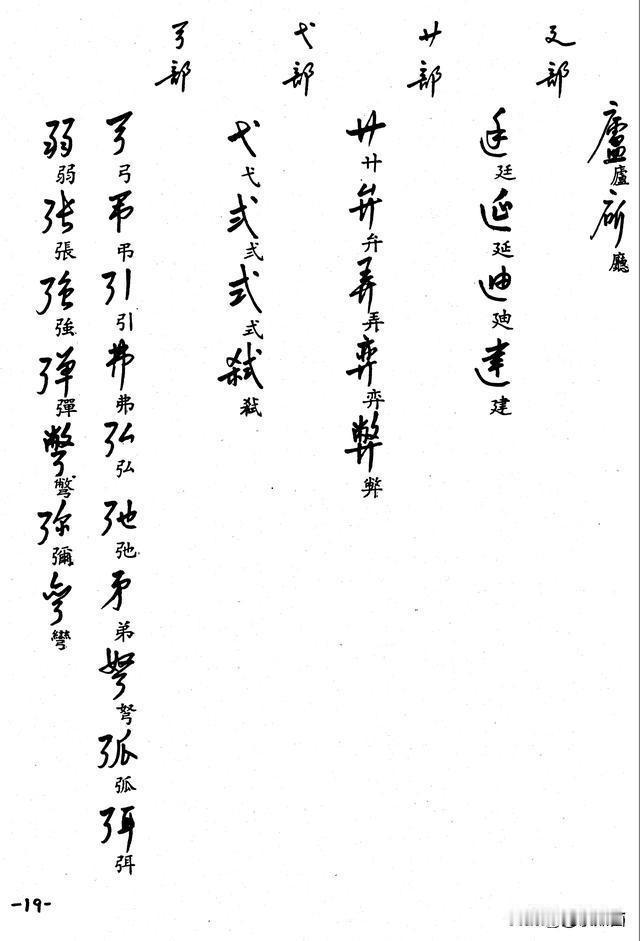 廬廬廳廳
廴部
廷廷延延廸廸建建
廾部
廾廾弁弁弄弄弈弈弊弊
弋部
弋弋弍弍式式弒弒
弓部
弓弓弔弔引引弗弗弘弘弛弛弟弟弩弩弧弧弭弭
弱弱张張強強弹彈彆彆弥彌弯彎
-19-